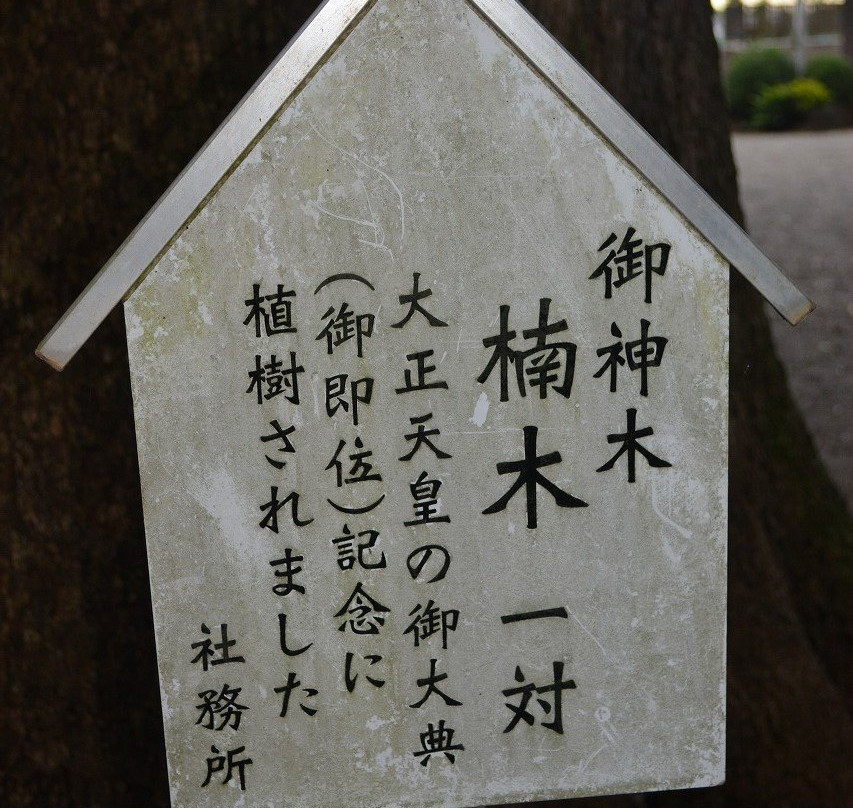 御神木
楠木 一対
大正天皇の御大典
（御即位）記念に
植樹されました
社務所